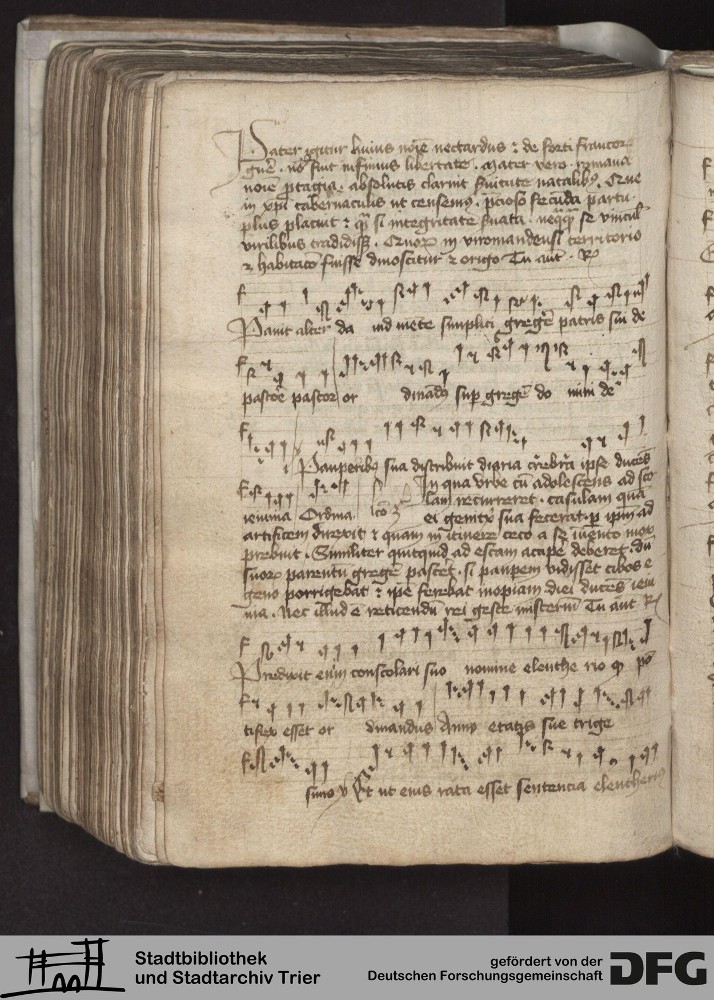 Pater igitur huius noie nectardus ⁊ de forti francor
gne . no fuit infimus libertate . Mater vero romana
noie ptagia . absolutis claruit natalibꝰ . Que
in xpi tabernaculis ut censemꝰ . pcioso fecuda partu
plus placuit ⁊ si integritate
virilibus tradidiss . Quoꝝ in viromandensi territorio
⁊ habitaco fuisse dinoscitur ⁊ origo Tu aut . R
Pauit alter da uid mete simplici grege patris sui de
pastore pastor or dinadꝰ sup grege do mini de
Pauperibꝰ sua distribuit diaria crebra ipse duces
ieiunia Ordina In qua vrbe cu adolescens ad sco
lam recurreret . casulam qua
ei genitx sua fecerat . p ipm ad
artificem direxit ⁊ quam in itinere ceco a se iuento mox
prebuit . Similiter quicquid ad escam accipe deberet . du
suoꝝ parentu grege pascet . si paupem vidisset cibos e
geno porrigebat ⁊ ipe ferebat inopiam diei duces ieiu
nia . Nec illud e reticendu rei geste misteriu Tu aut R
Predixit enim conscolari suo nomine eleuthe rio ꝙ po
tifex esset or dinandus Anno etatis sue trige
simo v Et ut eius rata esset sentencia eleutheriꝰ
Stadtbibliothek
und Stadtarchiv Trier
gefördert von der
Deutschen Forschungsgemeinschaft
DFG